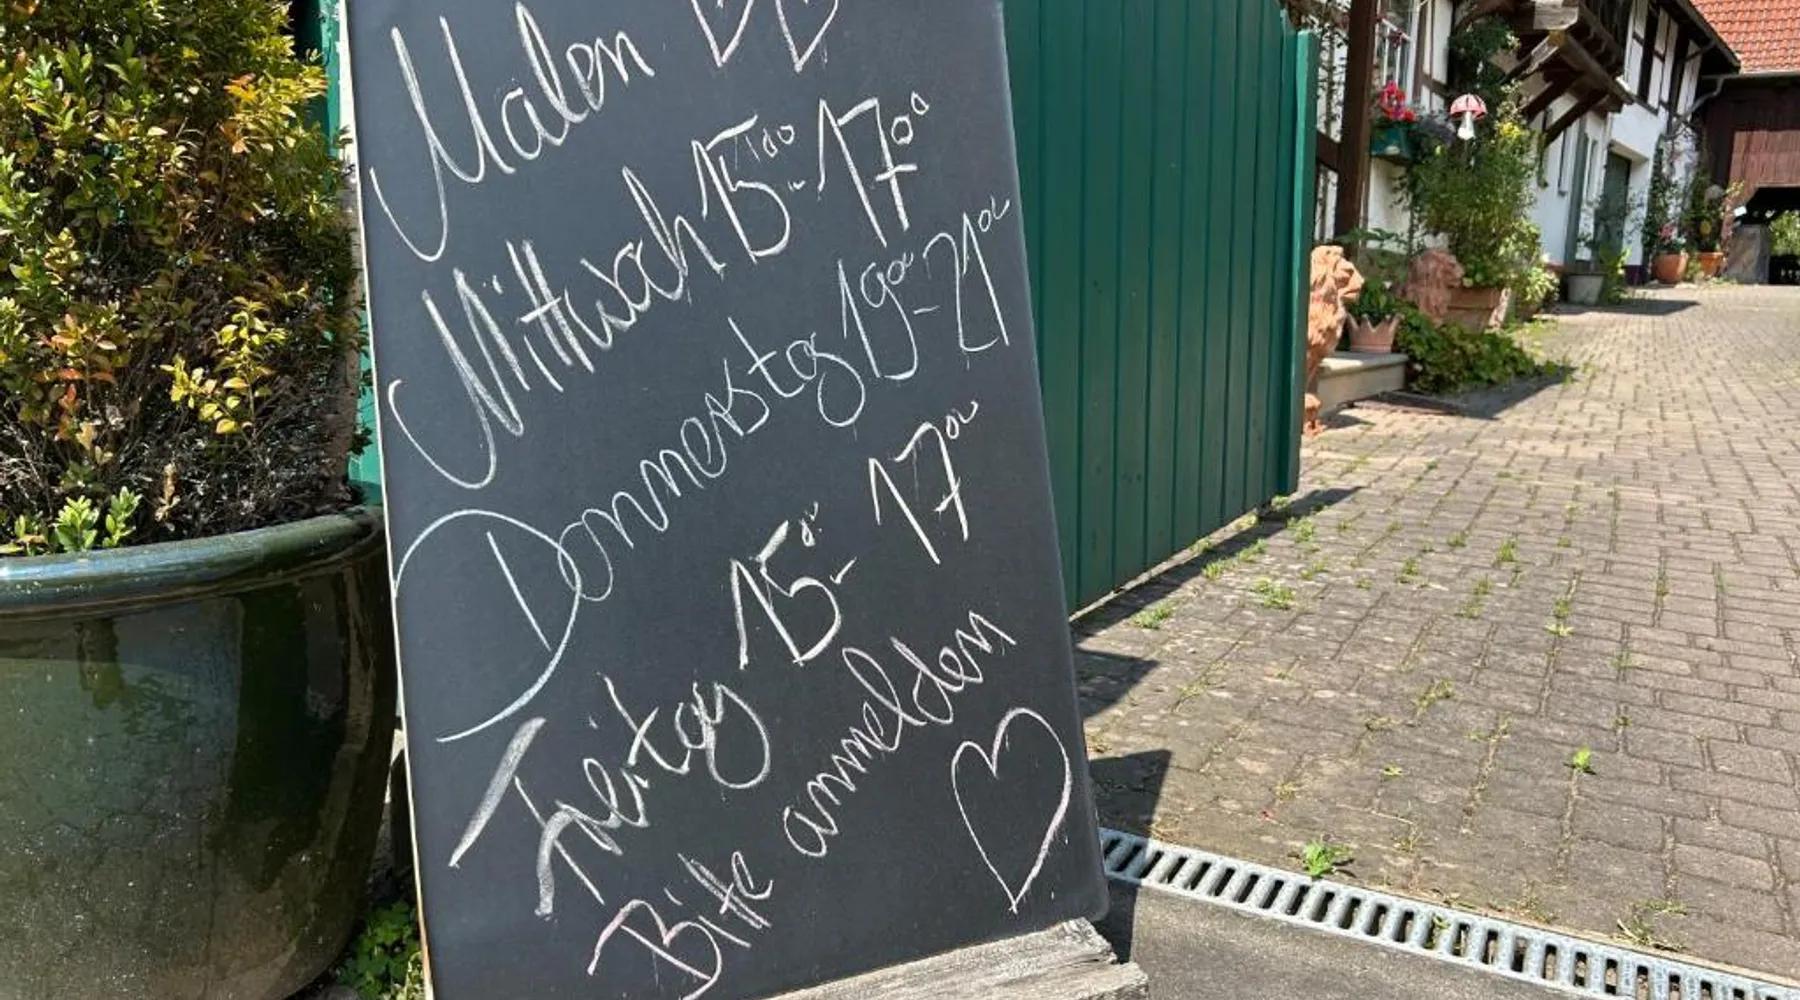 Malen
Mittwoch 15:00 - 17:00
Donnerstag 19:00 - 21:00
Freitag 15:00 - 17:00
Bitte anmelden